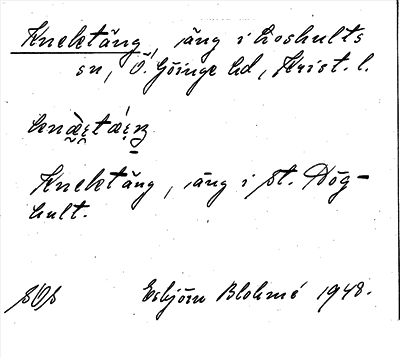 Knektäng, äng i Loshults
sn, Ö. Göinge hd, Krist. l.
Knektäng, äng i St. Hög-
hult.
SOS Esbjörn Blohmé 1948.